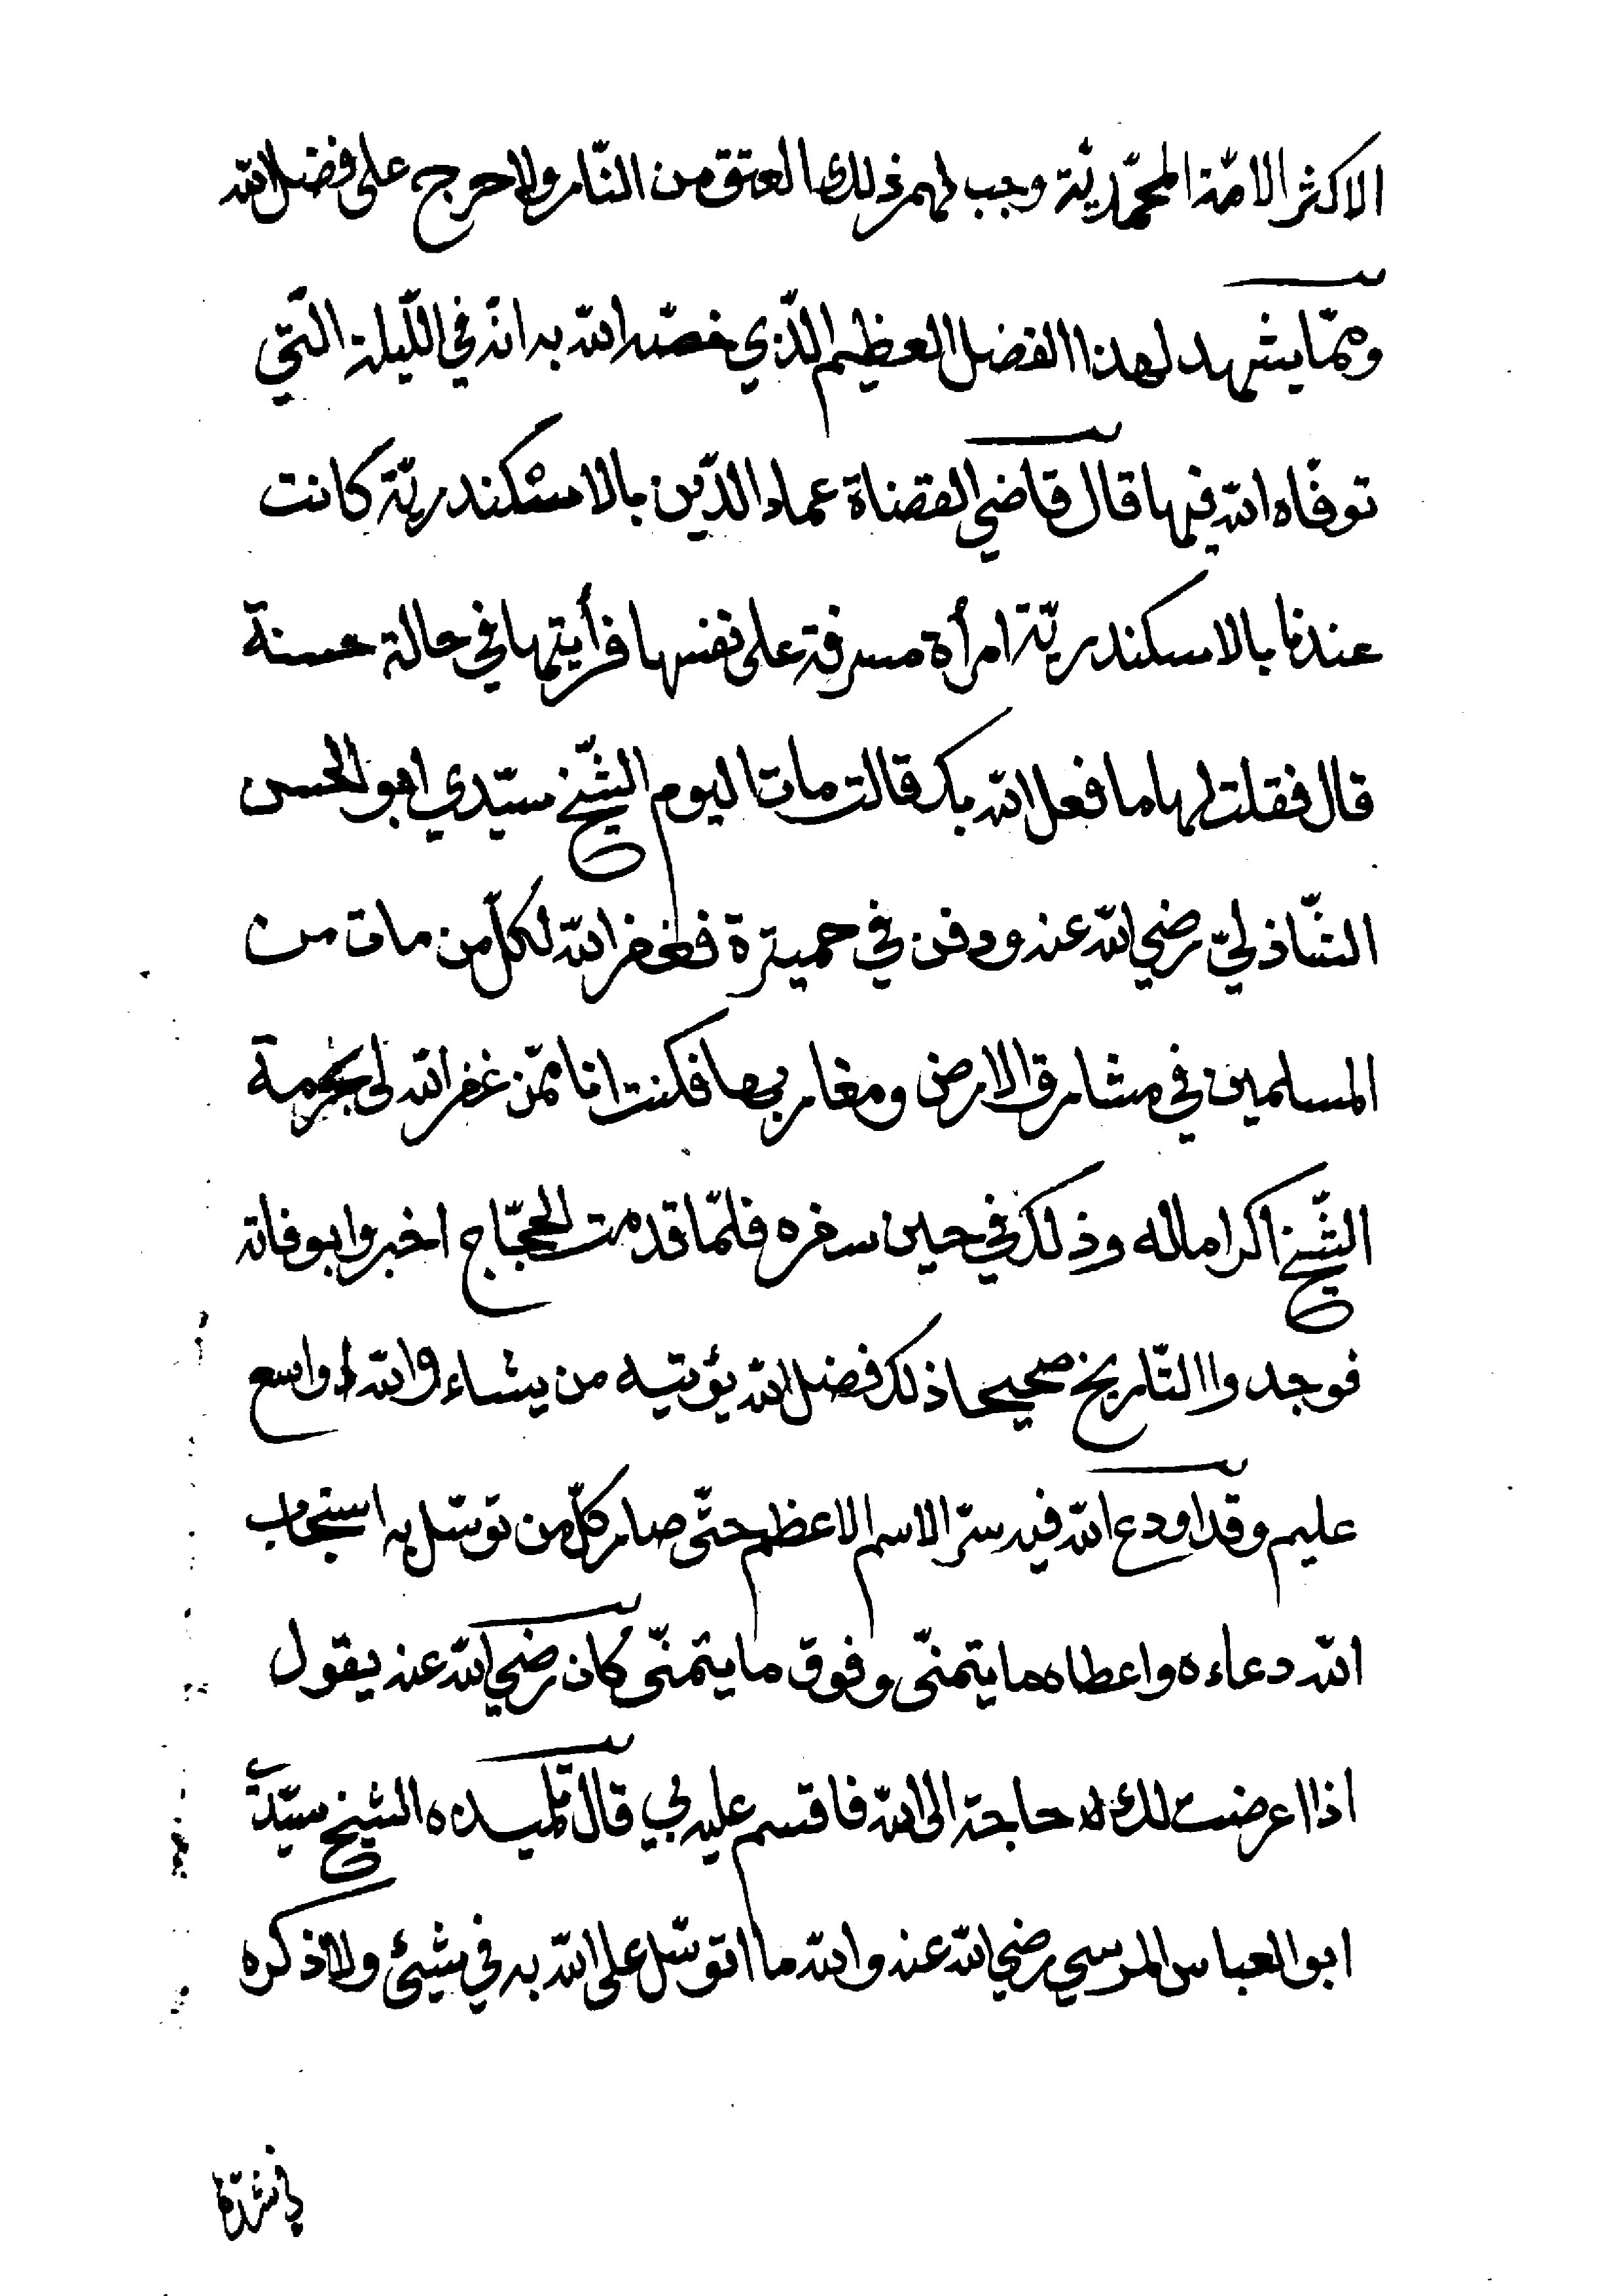 الاكثر الامّة المحمّديّة وجب لهم ذلك العتق من النّار ولا حرج على فضل الله
وممّا يشهد لهذا الفضل العظيم الّذي خصّه الله به انّه في اللّيلة الّتي
توفّاه الله فيها قال قاضي القضاة عماد الدّين بالاسكندريّة كانت
عندنا بالاسكندريّة امرأة مسرفة على نفسها فرأيتها في حالة حسنة
قال فقلت لها ما فعل الله بك قالت مات اليوم الشّيخ سيّدي ابو الحسن
الشّاذليّ رضي الله عنه ودفن في حميترة فغفر الله لكلّ من مات من
المسلمين في مشارق الارض ومغاربها فكنت انا ممّن غفر الله لي بحرمة
الشّيخ اكراما له وذلك في حين سفره فلمّا قدمت الحجّاج اخبروا بوفاته
فوجدوا التّاريخ صحيحا ذلك فضل الله يؤتيه من يشاء والله واسع
عليم وقد اودع الله فيه سرّ الاسم الاعظم حتّى صار كلّ من توسّل به استجاب
الله دعاءه واعطاه ما يتمنّى وفوق ما يتمنّى كان رضي الله عنه يقول
اذا عرضت لك حاجة الى الله فاقسم عليه بي قال تلميده الشيخ سيّدي
ابو العباس المرسي رضي الله عنه والله ما اتوسّل على الله به في شيئ ولا اذكره
في شدّة